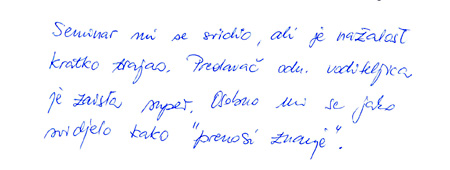 Seminar mi se svidio, ali je nažalost
kratko trajao. Predavač odn. voditeljica
je zaista super. Osobno mi se jako
svidjelo kako "prenosi znanje".